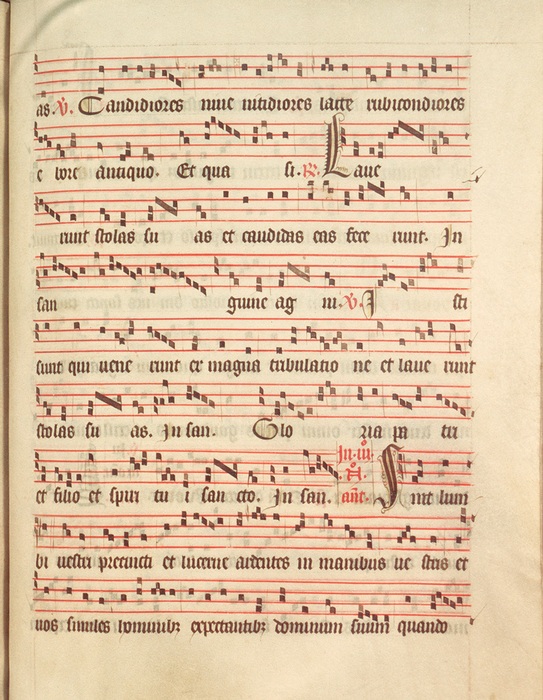 as. V. Candidiores niue nitidiores lacte rubicondiores
e bore antiquo. Et qua si. R. Laue
runt stolas su as et candidas eas fece runt. In
san guine ag ni. V. I sti
sunt qui uene runt ex magna tribulatio ne et laue runt
stolas su as. In san. Glo ria pa tri
In. iii. N.
et filio et spiri tu i san cto. In san. ant. Sint lum
bi uestri precincti et lucerne ardentes in manibus ue stris et
uos similes hominibz expectantibz dominum suum quando